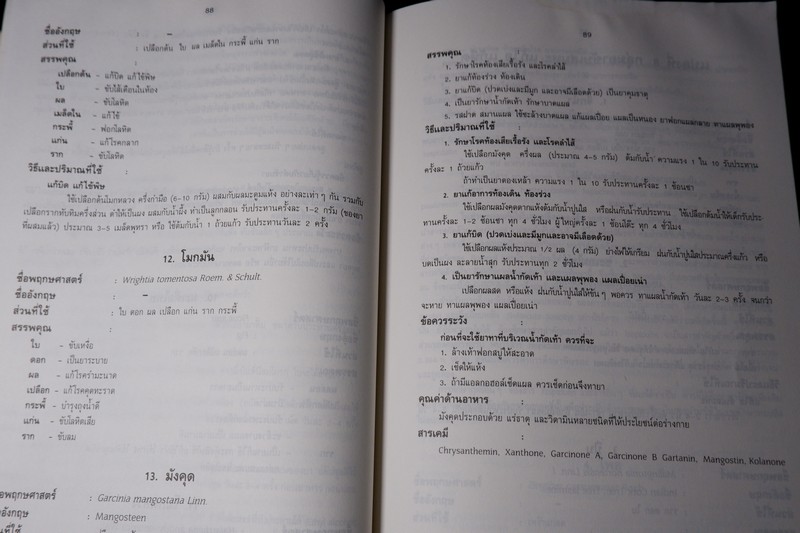 88
ชื่ออังกฤษ : –
ส่วนที่ใช้ : เปลือกต้น ใบ ผล เมล็ดใน กระพี้ แก่น ราก
สรรพคุณ :
เปลือกต้น – แก้บิด แก้ไข้พิษ
ใบ – ขับไส้เดือนในท้อง
ผล – ขับโลหิต
เมล็ดใน – แก้ไข้
กระพี้ – ฟอกโลหิต
แก่น – แก้โรคกลาก
ราก – ขับโลหิต
วิธีและปริมาณที่ใช้ :
แก้บิด แก้ไข้พิษ
ใช้เปลือกต้นโมกหลวง ครึ่งกำมือ (6-10 กรัม) ผสมกับผลมะตูมแห้ง อย่างละเท่าๆ กัน รวมกับ
เปลือกรากทับทิมครึ่งส่วน ตำให้เป็นผง ผสมกับน้ำผึ้ง ทำเป็นลูกกลอน รับประทานครั้งละ 1-2 กรัม (ของยา
ที่ผสมแล้ว) ประมาณ 3-5 เมล็ดพุทรา หรือ ใช้ต้มกับน้ำ 1 ถ้วยแก้ว รับประทานวันละ 2 ครั้ง
12. โมกมัน
ชื่อพฤกษศาสตร์ : Wrightia tomentosa Roem. & Schult.
ชื่ออังกฤษ : –
ส่วนที่ใช้ : ใบ ดอก ผล เปลือก แก่น ราก กระพี้
สรรพคุณ :
ใบ – ขับเหงื่อ
ดอก – เป็นยาระบาย
ผล – แก้โรครำมะนาด
เปลือก – แก้โรคคุดทะราด
กระพี้ – บำรุงถุงน้ำดี
แก่น – ขับโลหิตเสีย
ราก – ขับลม
13. มังคุด
ชื่อพฤกษศาสตร์ : Garcinia mangostana Linn.
ชื่ออังกฤษ : Mangosteen
89
สรรพคุณ :
1. รักษาโรคท้องเสียเรื้อรัง และโรคลำไส้
2. ยาแก้ท้องร่วง ท้องเดิน
3. ยาแก้บิด (ปวดเบ่งและมีมูก และอาจมีเลือดด้วย) เป็นยาคุมธาตุ
4. เป็นยารักษาน้ำกัดเท้า รักษาบาดแผล
5. รสฝาด สมานแผล ใช้ชะล้างบาดแผล แก้แผลเปื่อย แผลเป็นหนอง ยาฟอกแผลกลาย ทาแผลพุพอง
วิธีและปริมาณที่ใช้ :
1. รักษาโรคท้องเสียเรื้อรัง และโรคลำไส้
ใช้เปลือกมังคุด ครึ่งผล (ประมาณ 4-5 กรัม) ต้มกับน้ำ ความแรง 1 ใน 10 รับประทาน
ครั้งละ 1 ถ้วยแก้ว
ถ้าทำเป็นยาดองเหล้า ความแรง 1 ใน 10 รับประทานครั้งละ 1 ช้อนชา
2. ยาแก้อาการท้องเดิน ท้องร่วง
ใช้เปลือกผลมังคุดตากแห้งต้มกับน้ำปูนใส หรือฝนกับน้ำรับประทาน ใช้เปลือกต้มน้ำให้เด็กรับประ
ทานครั้งละ 1-2 ช้อนชา ทุก 4 ชั่วโมง ผู้ใหญ่ครั้งละ 1 ช้อนโต๊ะ ทุก 4 ชั่วโมง
3. ยาแก้บิด (ปวดเบ่งและมีมูกและอาจมีเลือดด้วย)
ใช้เปลือกผลแห้งประมาณ 1/2 ผล (4 กรัม) ย่างไฟให้เกรียม ฝนกับน้ำปูนใสประมาณครึ่งแก้ว หรือ
บดเป็นผง ละลายน้ำสุก รับประทานทุก 2 ชั่วโมง
4. เป็นยารักษาแผลน้ำกัดเท้า และแผลพุพอง แผลเปื่อยเน่า
เปลือกผลสด หรือแห้ง ฝนกับน้ำปูนใสให้ข้นๆ พอควร ทาแผลน้ำกัดเท้า วันละ 2-3 ครั้ง จนกว่า
จะหาย ทาแผลพุพอง แผลเปื่อยเน่า
ข้อควรระวัง :
ก่อนที่จะใช้ยาทาที่บริเวณน้ำกัดเท้า ควรที่จะ
1. ล้างเท้าฟอกสบู่ให้สะอาด
2. เช็ดให้แห้ง
3. ถ้ามีแอลกอฮอล์เช็ดแผล ควรเช็ดก่อนจึงทายา
คุณค่าด้านอาหาร :
มังคุดประกอบด้วย แร่ธาตุ และวิตามินหลายชนิดที่ให้ประโยชน์ต่อร่างกาย
สารเคมี :
Chrysanthemin, Xanthone, Garcinone A, Garcinone B Gartanin, Mangostin, Kolanone